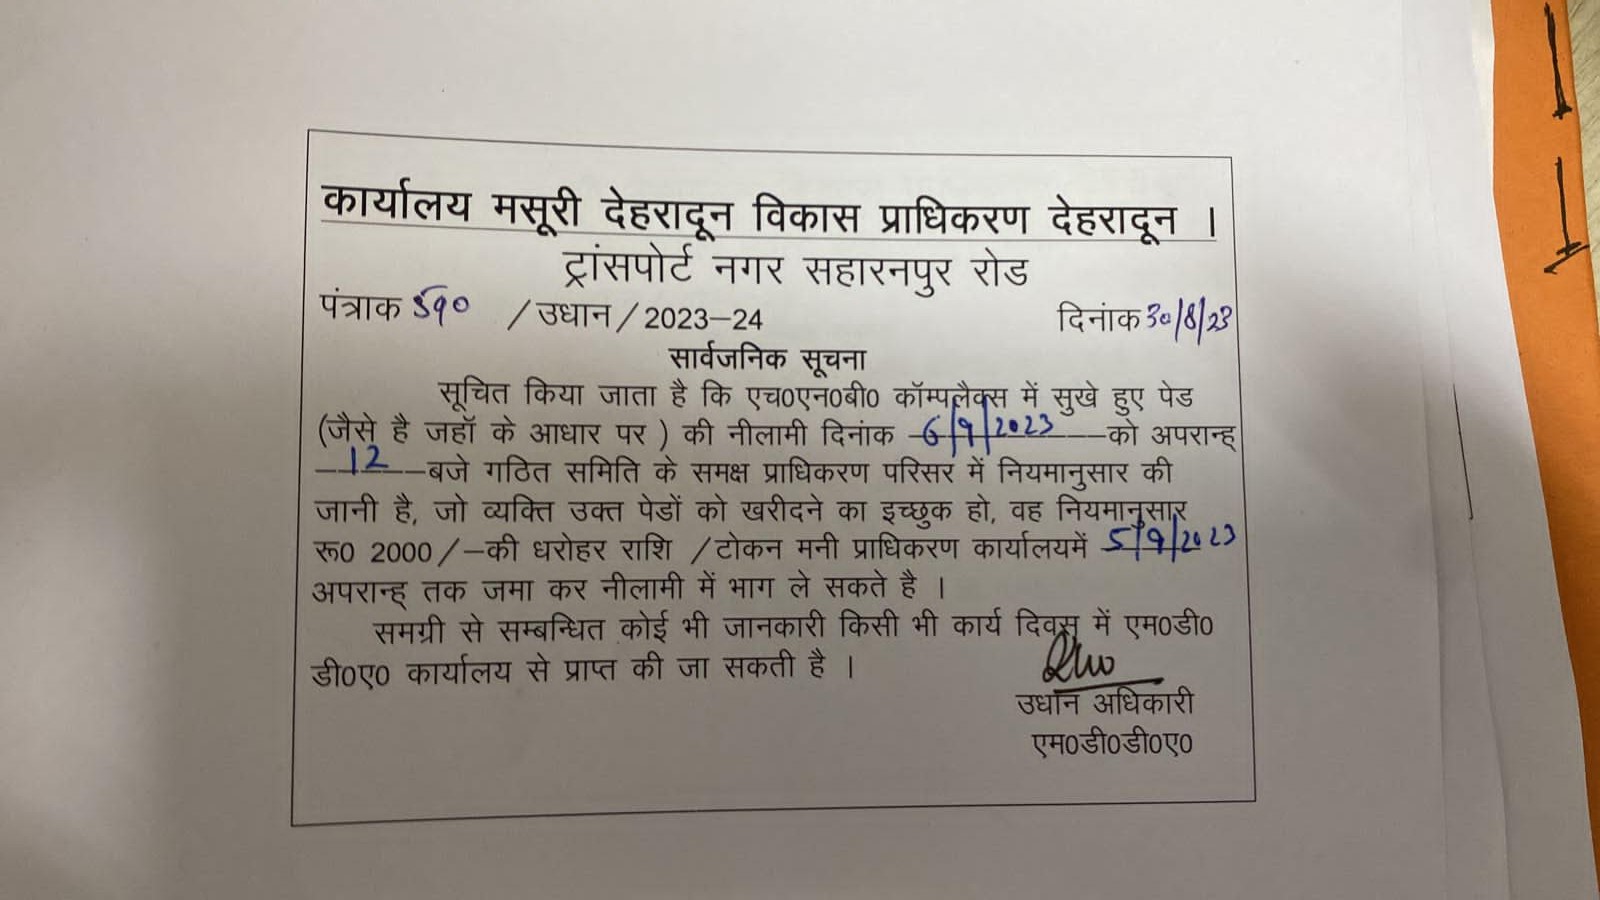 कार्यालय मसूरी देहरादून विकास प्राधिकरण देहरादून ।
ट्रांसपोर्ट नगर सहारनपुर रोड
पंत्राक 590 /उधान/2023–24 दिनांक 30/8/23
सार्वजनिक सूचना
सूचित किया जाता है कि एच0एन0बी0 कॉम्पलैक्स में सुखे हुए पेड
(जैसे है जहॉ के आधार पर ) की नीलामी दिनांक 6/9/2023 को अपरान्ह्
12 बजे गठित समिति के समक्ष प्राधिकरण परिसर में नियमानुसार की
जानी है, जो व्यक्ति उक्त पेडों को खरीदने का इच्छुक हो, वह नियमानुसार
रू0 2000/–की धरोहर राशि /टोकन मनी प्राधिकरण कार्यालयमें 5/9/2023
अपरान्ह् तक जमा कर नीलामी में भाग ले सकते है ।
समग्री से सम्बन्धित कोई भी जानकारी किसी भी कार्य दिवस में एम0डी0
डी0ए0 कार्यालय से प्राप्त की जा सकती है ।
उधान अधिकारी
एम0डी0डी0ए0